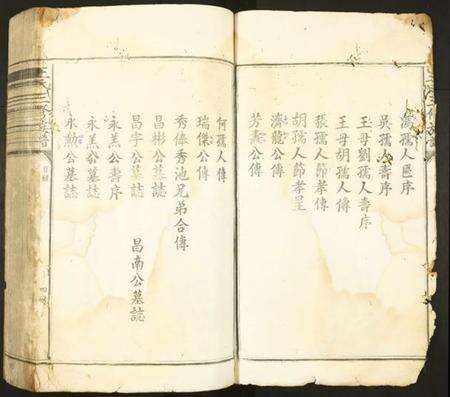 萬孺人匾序
吳孺人壽序
王母劉孺人壽序
王母胡孺人傳
張孺人節孝傳
胡孺人節孝呈
濟龍公傳
芳壽公傳
何孺人傳
瑞傑公傳
秀俸秀池兄弟合傳
昌彬公墓誌
昌宇公墓誌
昌南公墓誌
永羔公壽序
永羔公墓誌
永勳公墓誌
目錄